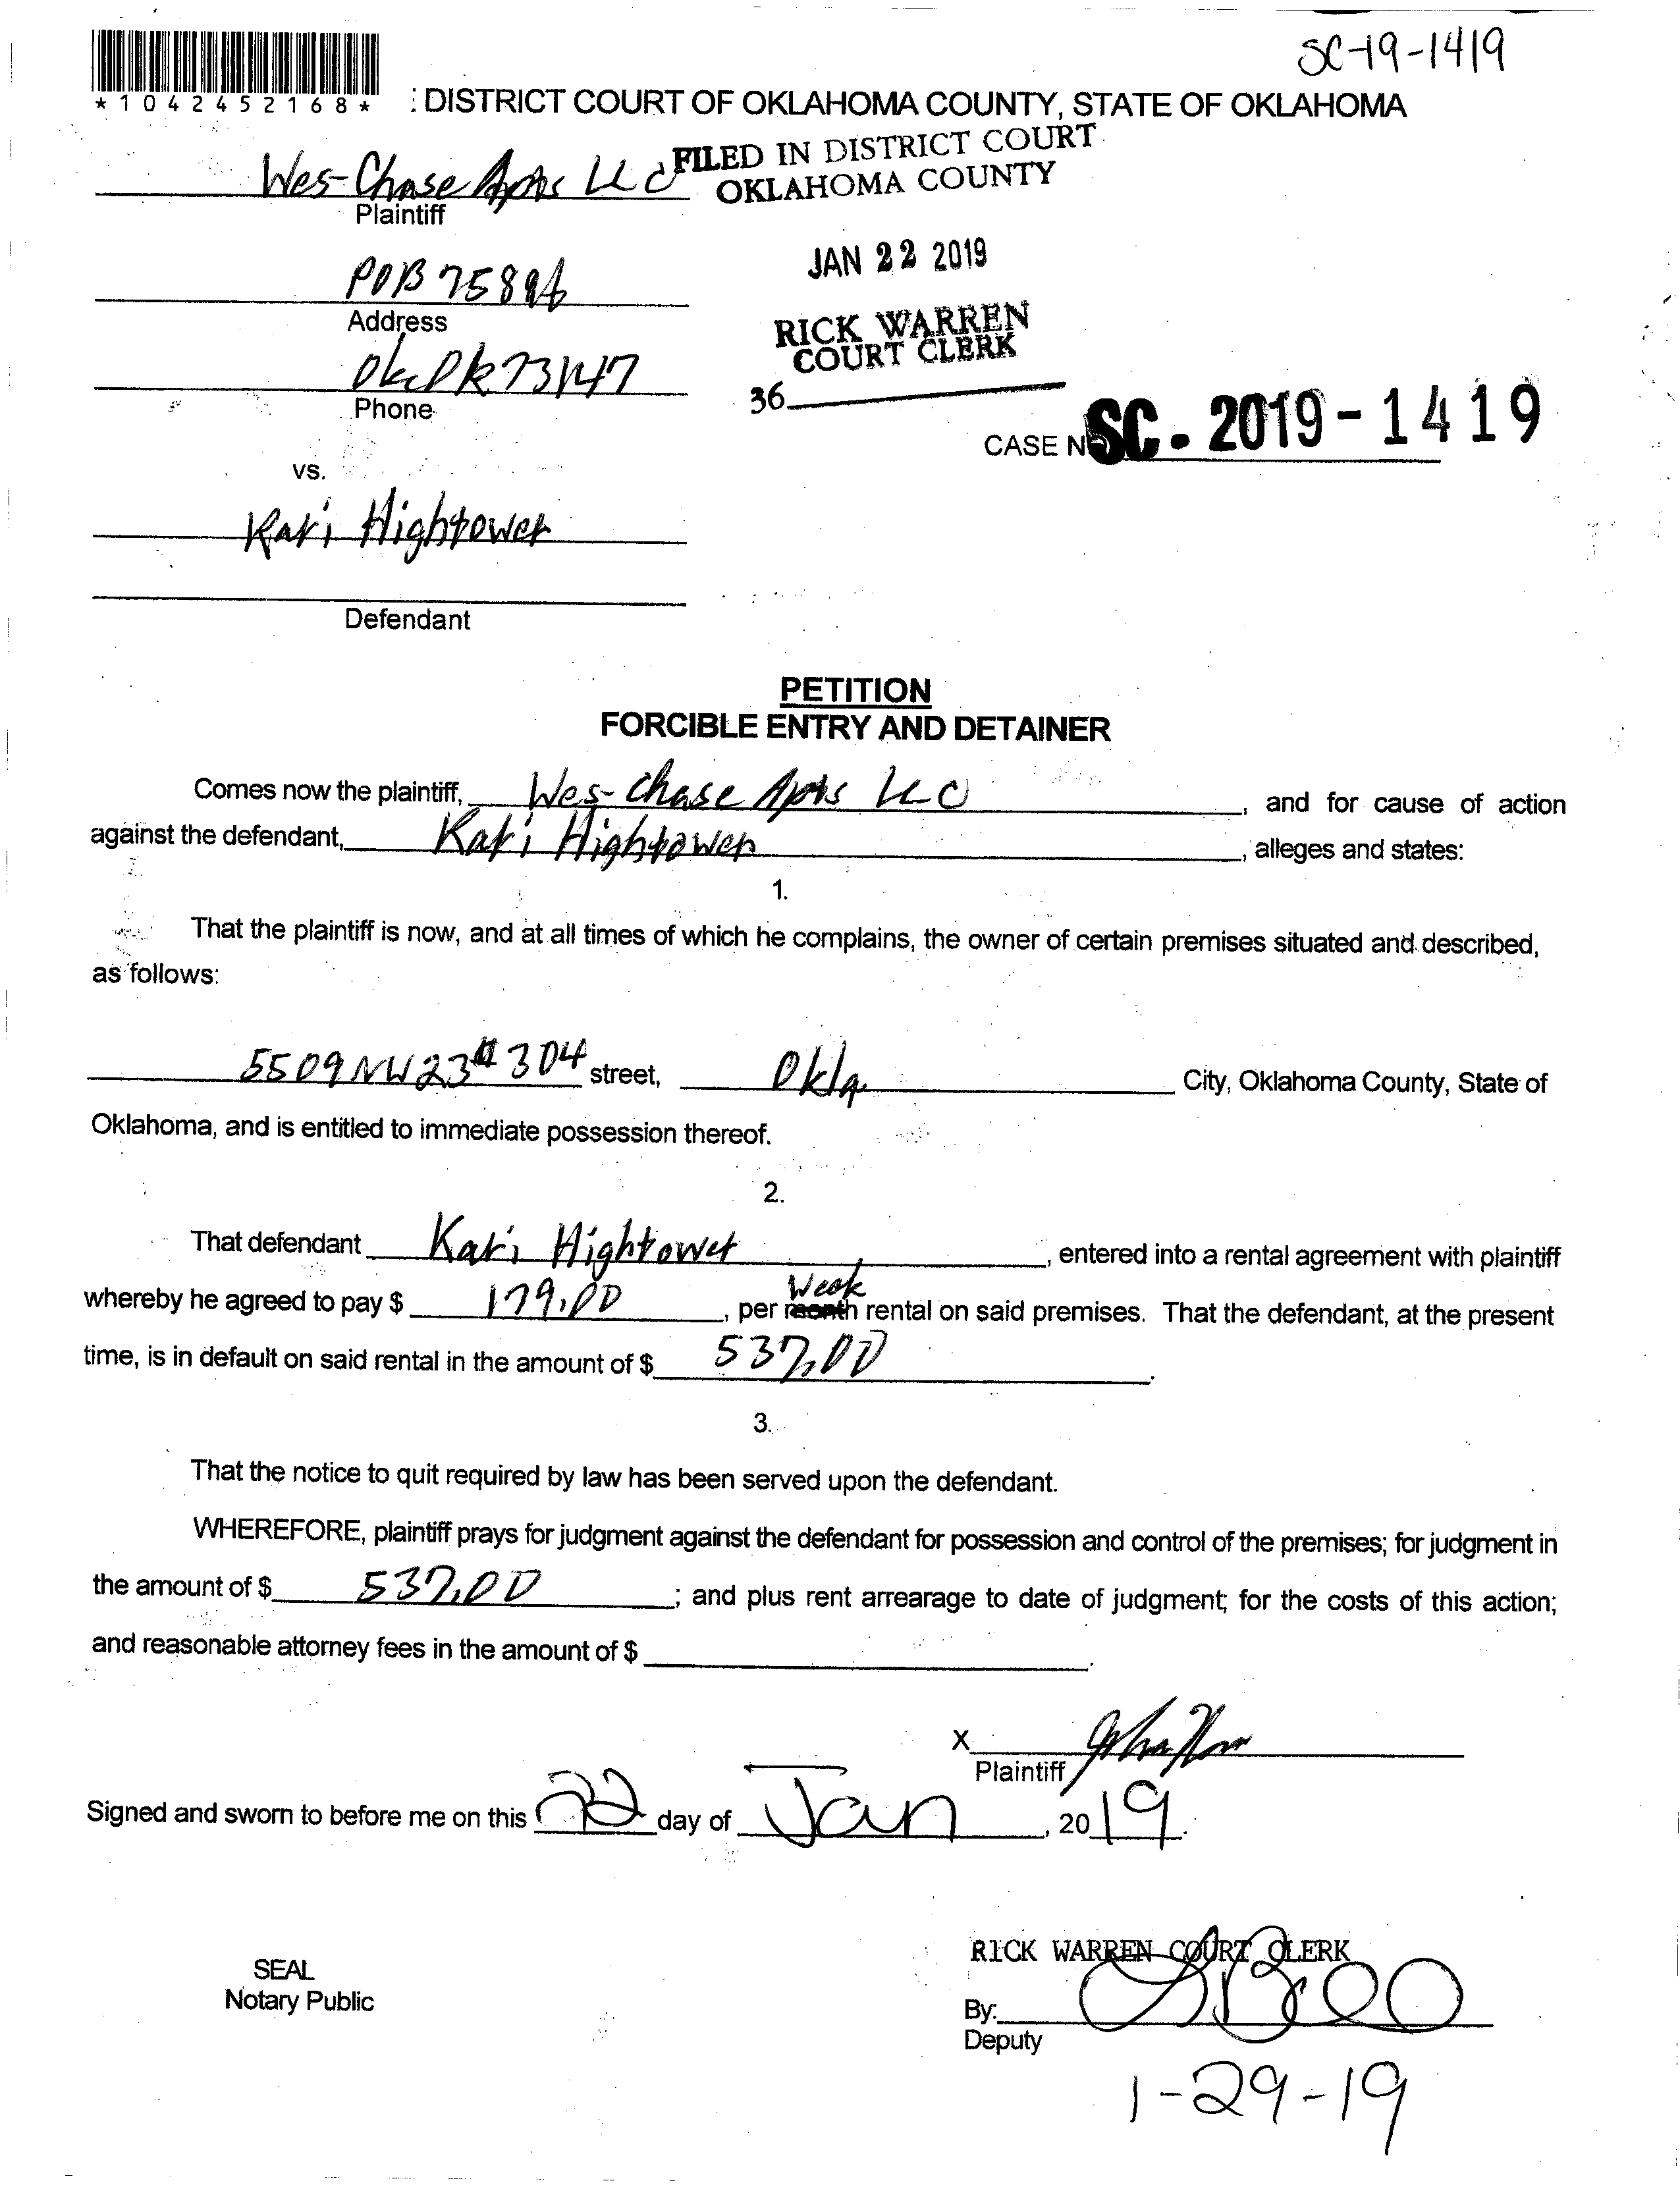 SC-19-1419
*1042452168*
: DISTRICT COURT OF OKLAHOMA COUNTY, STATE OF OKLAHOMA
FILED IN DISTRICT COURT
OKLAHOMA COUNTY
Wes-Chase Apts LLC
Plaintiff
JAN 22 2019
POB 75896
Address
RICK WARREN
COURT CLERK
Okc Ok 73147
Phone
36
CASE NO SC. 2019-1419
vs.
Kari Hightower
Defendant
PETITION
FORCIBLE ENTRY AND DETAINER
Comes now the plaintiff, Wes-Chase Apts LLC, and for cause of action
against the defendant, Kari Hightower, alleges and states:
1.
That the plaintiff is now, and at all times of which he complains, the owner of certain premises situated and described,
as follows:
5509 NW 23 # 304 street, Okla City, Oklahoma County, State of
Oklahoma, and is entitled to immediate possession thereof.
2.
That defendant Kari Hightower, entered into a rental agreement with plaintiff
Week
whereby he agreed to pay $ 179.00, per month rental on said premises. That the defendant, at the present
time, is in default on said rental in the amount of $ 537.00.
3.
That the notice to quit required by law has been served upon the defendant.
WHEREFORE, plaintiff prays for judgment against the defendant for possession and control of the premises; for judgment in
the amount of $ 537.00; and plus rent arrearage to date of judgment; for the costs of this action;
and reasonable attorney fees in the amount of $.
X
Plaintiff
Signed and sworn to before me on this 22 day of Jan, 2019.
RICK WARREN COURT CLERK
SEAL
Notary Public
By:
Deputy
1-29-19